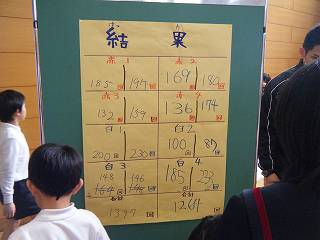 けっ か
結 果
赤1 赤2
185回 197回 169回 180回
赤3 赤4
132回 159回 136回 174回
白1 白2
200回 230回 100回 87回
白3 白4
148 146 185回 233回
合計 合計
1397回 1264回